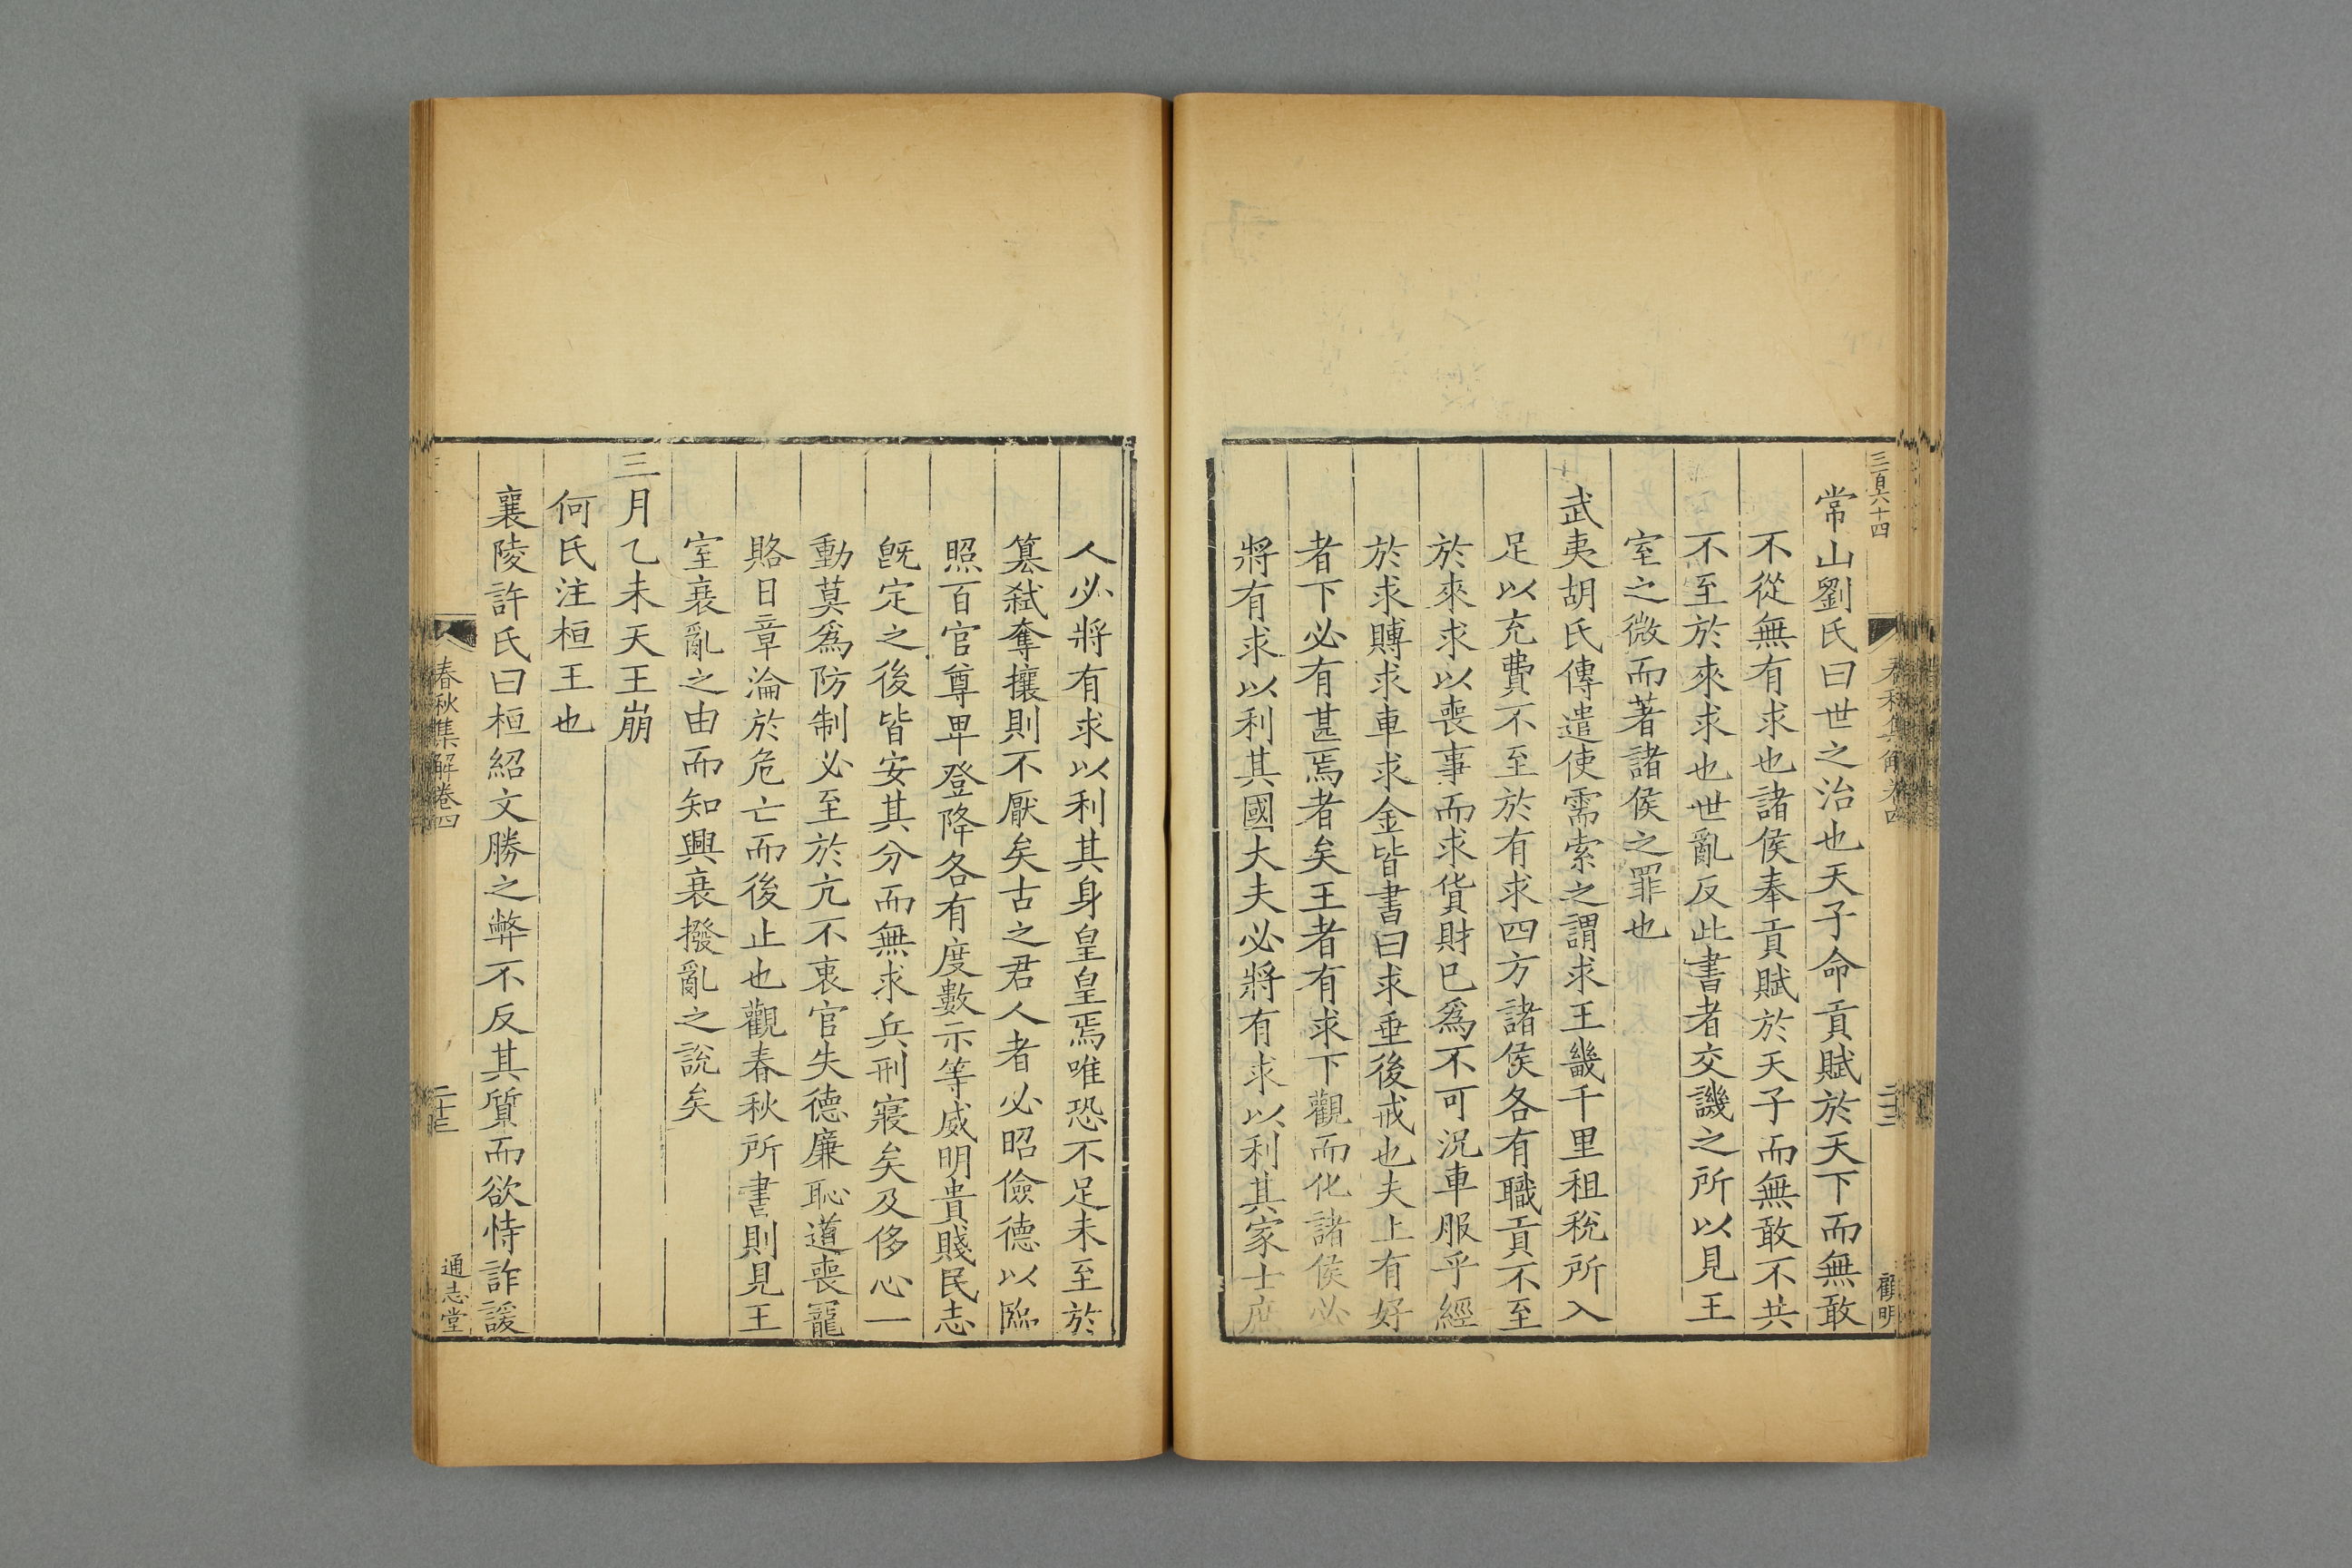 三百六十四
春秋集解卷四
二十三
顧明
常山劉氏曰世之治也天子命貢賦於天下而無敢
不從無有求也諸侯奉貢賦於天子而無敢不共
不至於來求也世亂反此書者交譏之所以見王
室之微而著諸侯之罪也
武夷胡氏傳遣使需索之謂求王畿千里租稅所入
足以充費不至於有求四方諸侯各有職貢不至
於來求以喪事而求貨財已爲不可況車服乎經
於求賻求車求金皆書曰求垂後戒也夫上有好
者下必有甚焉者矣王者有求下觀而化諸侯必
將有求以利其國大夫必將有求以利其家士庶
人必將有求以利其身皇皇焉唯恐不足未至於
簒弑奪攘則不厭矣古之君人者必昭儉德以臨
照百官尊卑登降各有度數示等威明貴賤民志
旣定之後皆安其分而無求兵刑寢矣及侈心一
動莫爲防制必至於亢不衷官失德廉恥道喪寵
賂日章淪於危亡而後止也觀春秋所書則見王
室衰亂之由而知興衰撥亂之說矣
三月乙未天王崩
何氏注桓王也
襄陵許氏曰桓紹文勝之弊不反其質而欲恃詐諼
春秋集解卷四
二十三
通志堂